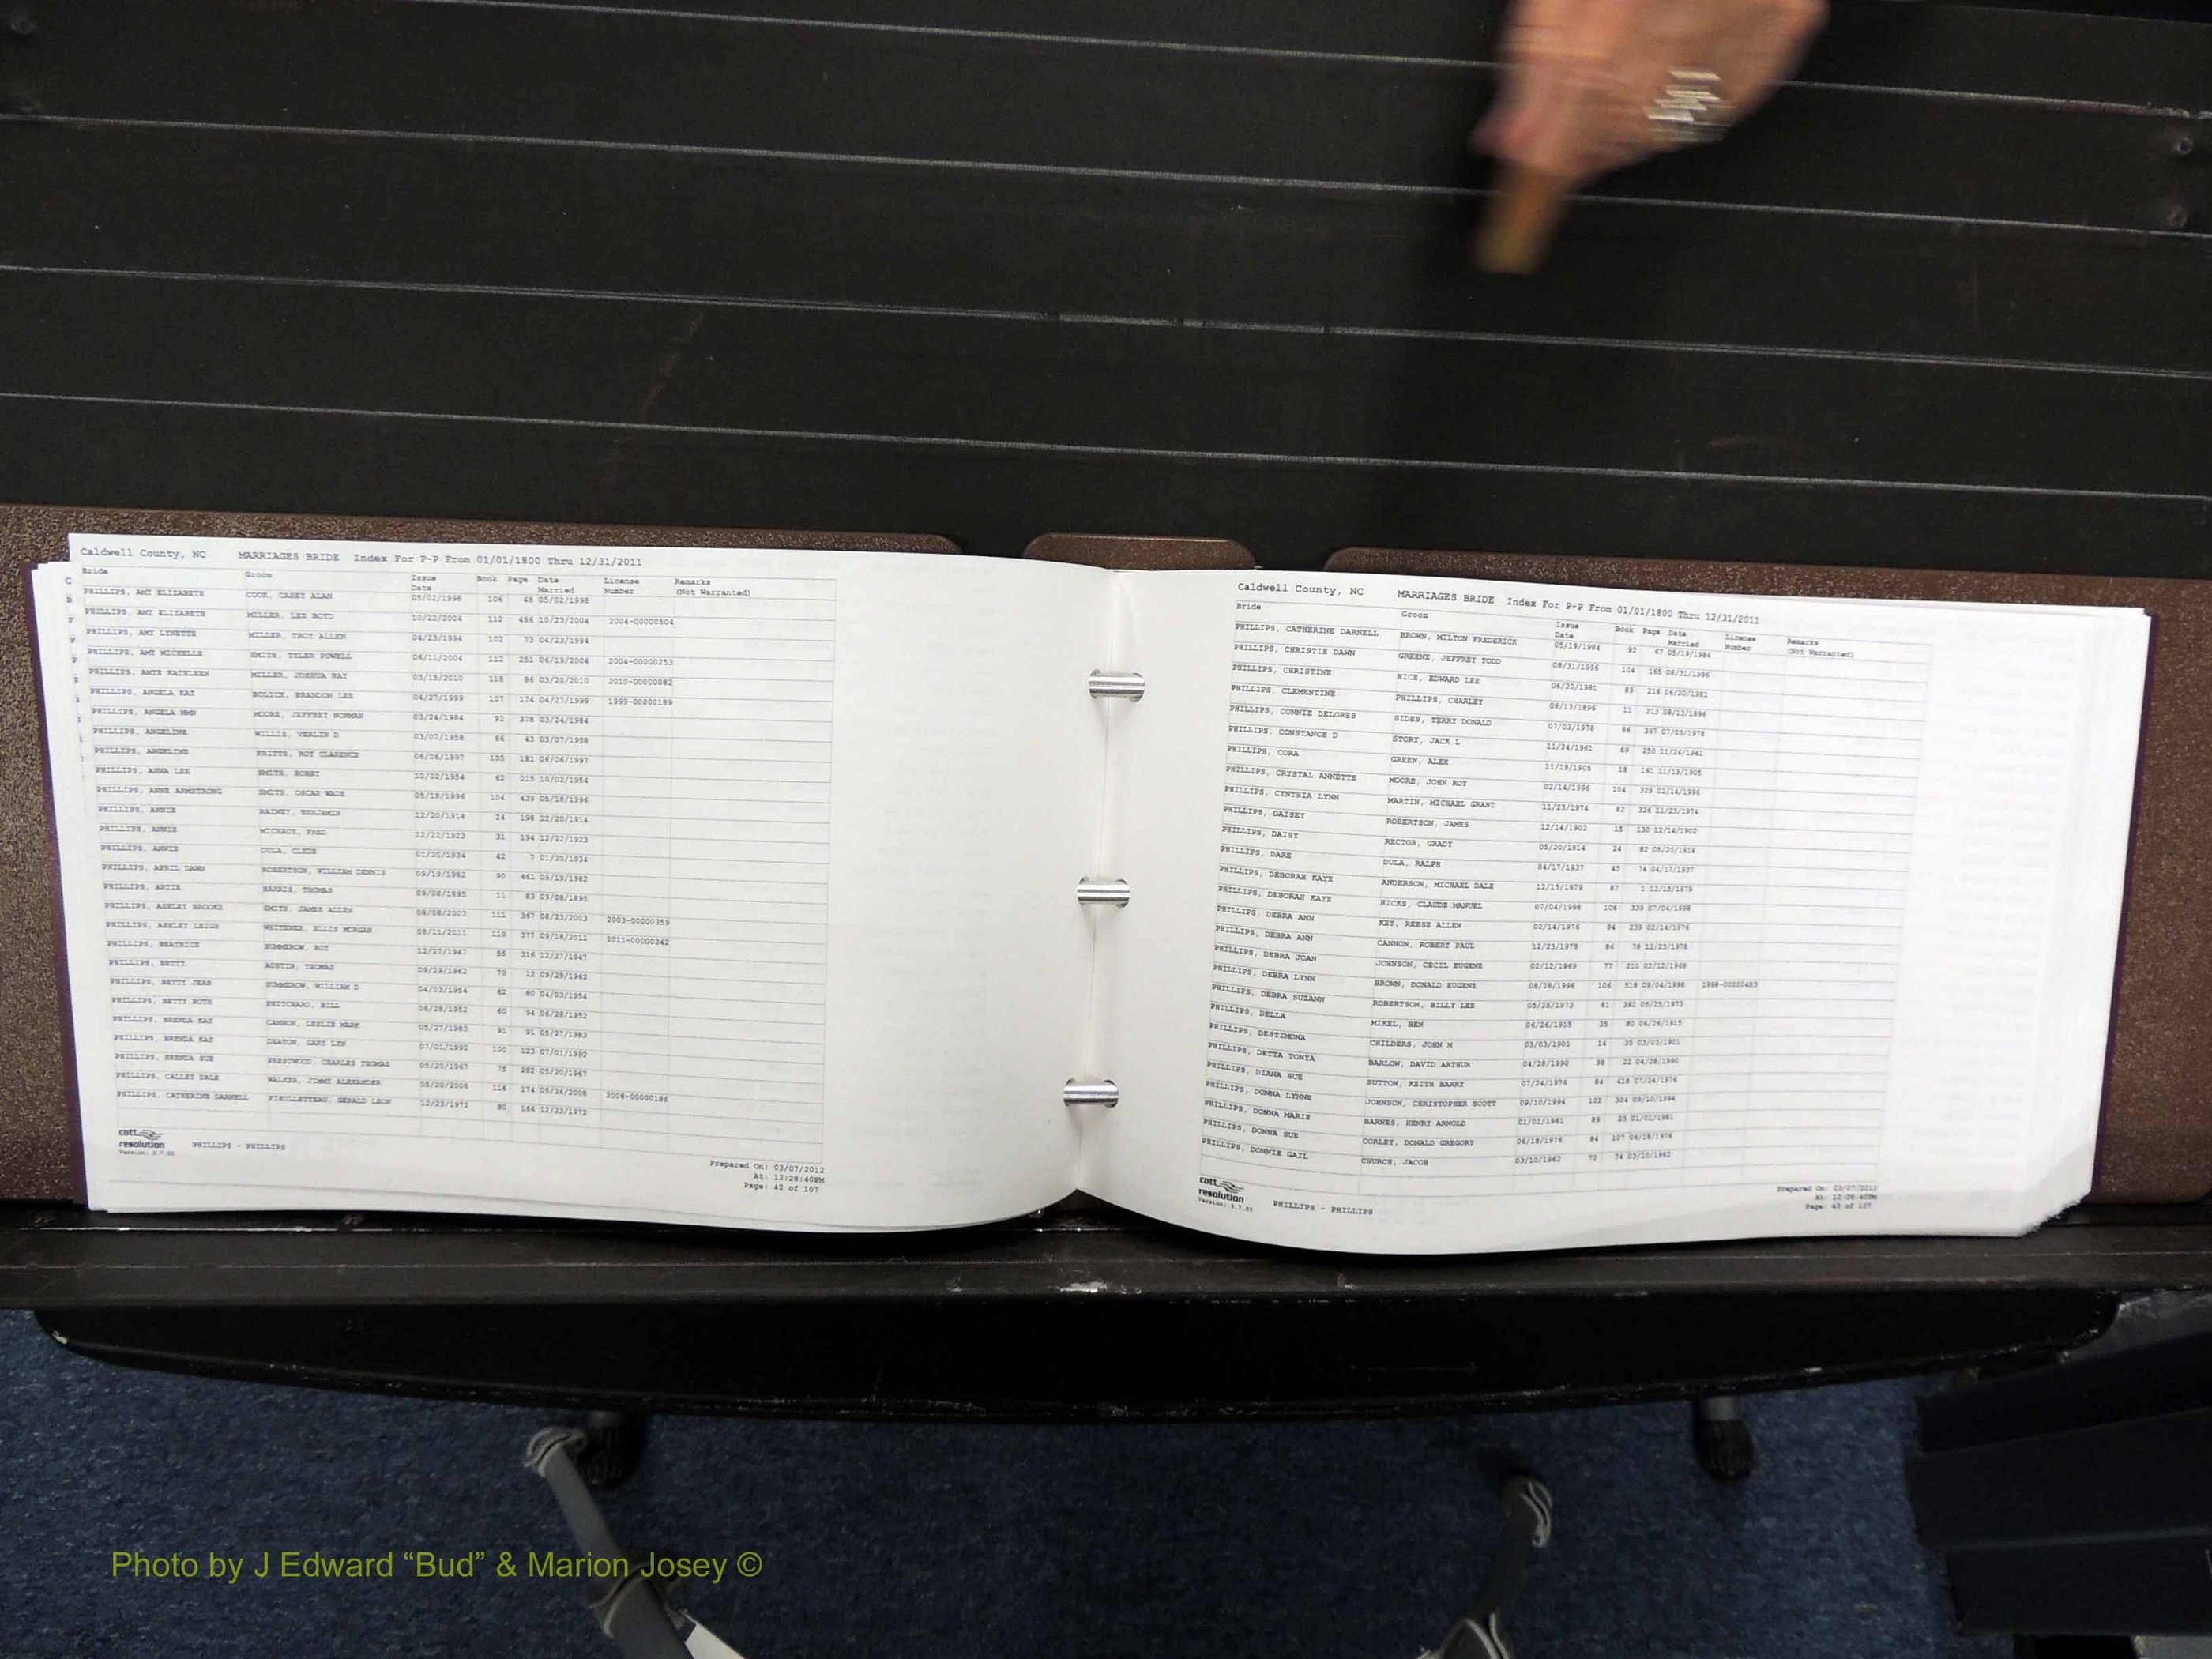 Caldwell County, NC MARRIAGES BRIDE Index For P-P From 01/01/1800 Thru 12/31/2011
Bride Groom Issue Date Book Page Date Married License Number Remarks (Not Warranted)
PHILLIPS, AMY ELIZABETH COOK, CASEY ALAN 05/02/1998 106 48 05/02/1998
PHILLIPS, AMY ELIZABETH MILLER, LEE BOYD 10/22/2004 112 486 10/23/2004 2004-00000504
PHILLIPS, AMY LYNETTE MILLER, TROY ALLEN 04/23/1994 102 73 04/23/1994
PHILLIPS, AMY MICHELLE SMITH, TYLER POWELL 06/11/2004 112 251 06/19/2004 2004-00000253
PHILLIPS, AMYE KATHLEEN MILLER, JOSHUA RAY 03/15/2010 118 86 03/20/2010 2010-00000082
PHILLIPS, ANGELA KAY BOLICK, BRANDON LEE 04/27/1999 107 174 04/27/1999 1999-00000189
PHILLIPS, ANGELA NMN MOORE, JEFFREY NORMAN 03/24/1984 92 378 03/24/1984
PHILLIPS, ANGELINE WILLIS, VERLIN D 03/07/1958 66 43 03/07/1958
PHILLIPS, ANGELINE FRITTS, ROY CLARENCE 06/06/1997 105 181 06/06/1997
PHILLIPS, ANNA LEE SMITH, BOBBY 10/02/1954 62 215 10/02/1954
PHILLIPS, ANNE ARMSTRONG SMITH, OSCAR WADE 05/18/1996 104 439 05/18/1996
PHILLIPS, ANNIE RAINEY, BENJAMIN 12/20/1914 24 198 12/20/1914
PHILLIPS, ANNIE MICHAUX, FRED 12/22/1923 31 194 12/22/1923
PHILLIPS, ANNIE DULA, CLYDE 01/20/1934 42 7 01/20/1934
PHILLIPS, APRIL DAWN ROBERTSON, WILLIAM DENNIS 09/19/1982 90 461 09/19/1982
PHILLIPS, ARTIE HARRIS, THOMAS 09/08/1895 11 83 09/08/1895
PHILLIPS, ASHLEY BROOKE SMITH, JAMES ALLEN 08/08/2003 111 367 08/23/2003 2003-00000359
PHILLIPS, ASHLEY LEIGH WHITENER, ELLIS MORGAN 08/11/2011 119 377 09/18/2011 2011-00000342
PHILLIPS, BEATRICE SUMMEROW, ROY 12/27/1947 55 316 12/27/1947
PHILLIPS, BETTY AUSTIN, THOMAS 09/29/1962 70 12 09/29/1962
PHILLIPS, BETTY JEAN SUMMEROW, WILLIAM D 04/03/1954 62 80 04/03/1954
PHILLIPS, BETTY RUTH PRITCHARD, BILL 06/28/1952 60 94 06/28/1952
PHILLIPS, BRENDA KAY CANNON, LESLIE MARK 05/27/1983 91 91 05/27/1983
PHILLIPS, BRENDA KAY DEATON, GARY LYN 07/01/1992 100 123 07/01/1992
PHILLIPS, BRENDA SUE PRESTWOOD, CHARLES THOMAS 05/20/1967 75 282 05/20/1967
PHILLIPS, CALLEY DALE WALKER, JIMMY ALEXANDER 05/20/2008 116 174 05/24/2008 2008-00000186
PHILLIPS, CATHERINE DARNELL GERALD LEON 12/23/1972 80 166 12/23/1972
cott resolution Version: 3.7.55
PHILLIPS - PHILLIPS
Prepared On: 03/07/2012
At: 12:28:40PM
Page: 42 of 107
Caldwell County, NC MARRIAGES BRIDE Index For P-P From 01/01/1800 Thru 12/31/2011
Bride Groom Issue Date Book Page Date Married License Number Remarks (Not Warranted)
PHILLIPS, CATHERINE DARNELL BROWN, MILTON FREDERICK 05/19/1984 92 67 05/19/1984
PHILLIPS, CHRISTIE DAWN GREENE, JEFFREY TODD 08/31/1996 104 165 08/31/1996
PHILLIPS, CHRISTINE HICE, EDWARD LEE 06/20/1981 89 216 06/20/1981
PHILLIPS, CLEMENTINE PHILLIPS, CHARLEY 08/13/1896 11 213 08/13/1896
PHILLIPS, CONNIE DELORES SIDES, TERRY DONALD 07/03/1978 86 397 07/03/1978
PHILLIPS, CONSTANCE D STORY, JACK L 11/24/1961 69 250 11/24/1961
PHILLIPS, CORA GREEN, ALEX 11/19/1905 18 161 11/19/1905
PHILLIPS, CRYSTAL ANNETTE MOORE, JOHN ROY 02/14/1996 104 329 02/14/1996
PHILLIPS, CYNTHIA LYNN MARTIN, MICHAEL GRANT 11/23/1974 82 326 11/23/1974
PHILLIPS, DAISEY ROBERTSON, JAMES 12/14/1902 15 130 12/14/1902
PHILLIPS, DAISY RECTOR, GRADY 05/20/1914 24 82 05/20/1914
PHILLIPS, DARE DULA, RALPH 04/17/1937 45 74 04/17/1937
PHILLIPS, DEBORAH KAYE ANDERSON, MICHAEL DALE 12/15/1979 87 1 12/15/1979
PHILLIPS, DEBORAH KAYE HICKS, CLAUDE MANUEL 07/04/1998 106 339 07/04/1998
PHILLIPS, DEBRA ANN KEY, REESE ALLEN 02/14/1976 84 239 02/14/1976
PHILLIPS, DEBRA ANN CANNON, ROBERT PAUL 12/23/1978 86 78 12/23/1978
PHILLIPS, DEBRA JOAN JOHNSON, CECIL EUGENE 02/12/1969 77 210 02/12/1969
PHILLIPS, DEBRA LYNN BROWN, DONALD EUGENE 08/28/1998 106 518 09/04/1998 1998-00000483
PHILLIPS, DEBRA SUZANN ROBERTSON, BILLY LEE 05/25/1973 81 392 05/25/1973
PHILLIPS, DELLA MIKEL, BEN 06/26/1915 25 80 06/26/1915
PHILLIPS, DESTIMONA CHILDERS, JOHN M 03/03/1901 14 35 03/03/1901
PHILLIPS, DETTA TONYA BARLOW, DAVID ARTHUR 04/28/1990 98 22 04/28/1990
PHILLIPS, DIANA SUE SUTTON, KEITH BARRY 07/24/1976 84 418 07/24/1976
PHILLIPS, DONNA LYNNE JOHNSON, CHRISTOPHER SCOTT 09/10/1994 102 304 09/10/1994
PHILLIPS, DONNA MARIE BARNES, HENRY ARNOLD 01/01/1981 89 23 01/01/1981
PHILLIPS, DONNA SUE CORLEY, DONALD GREGORY 06/18/1976 84 107 06/18/1976
PHILLIPS, DONNIE GAIL CHURCH, JACOB 03/10/1962 70 74 03/10/1962
cott resolution Version: 3.7.55
PHILLIPS - PHILLIPS
Prepared On: 03/07/2012
At: 12:28:40PM
Page: 43 of 107
Photo by J Edward “Bud” & Marion Josey ©